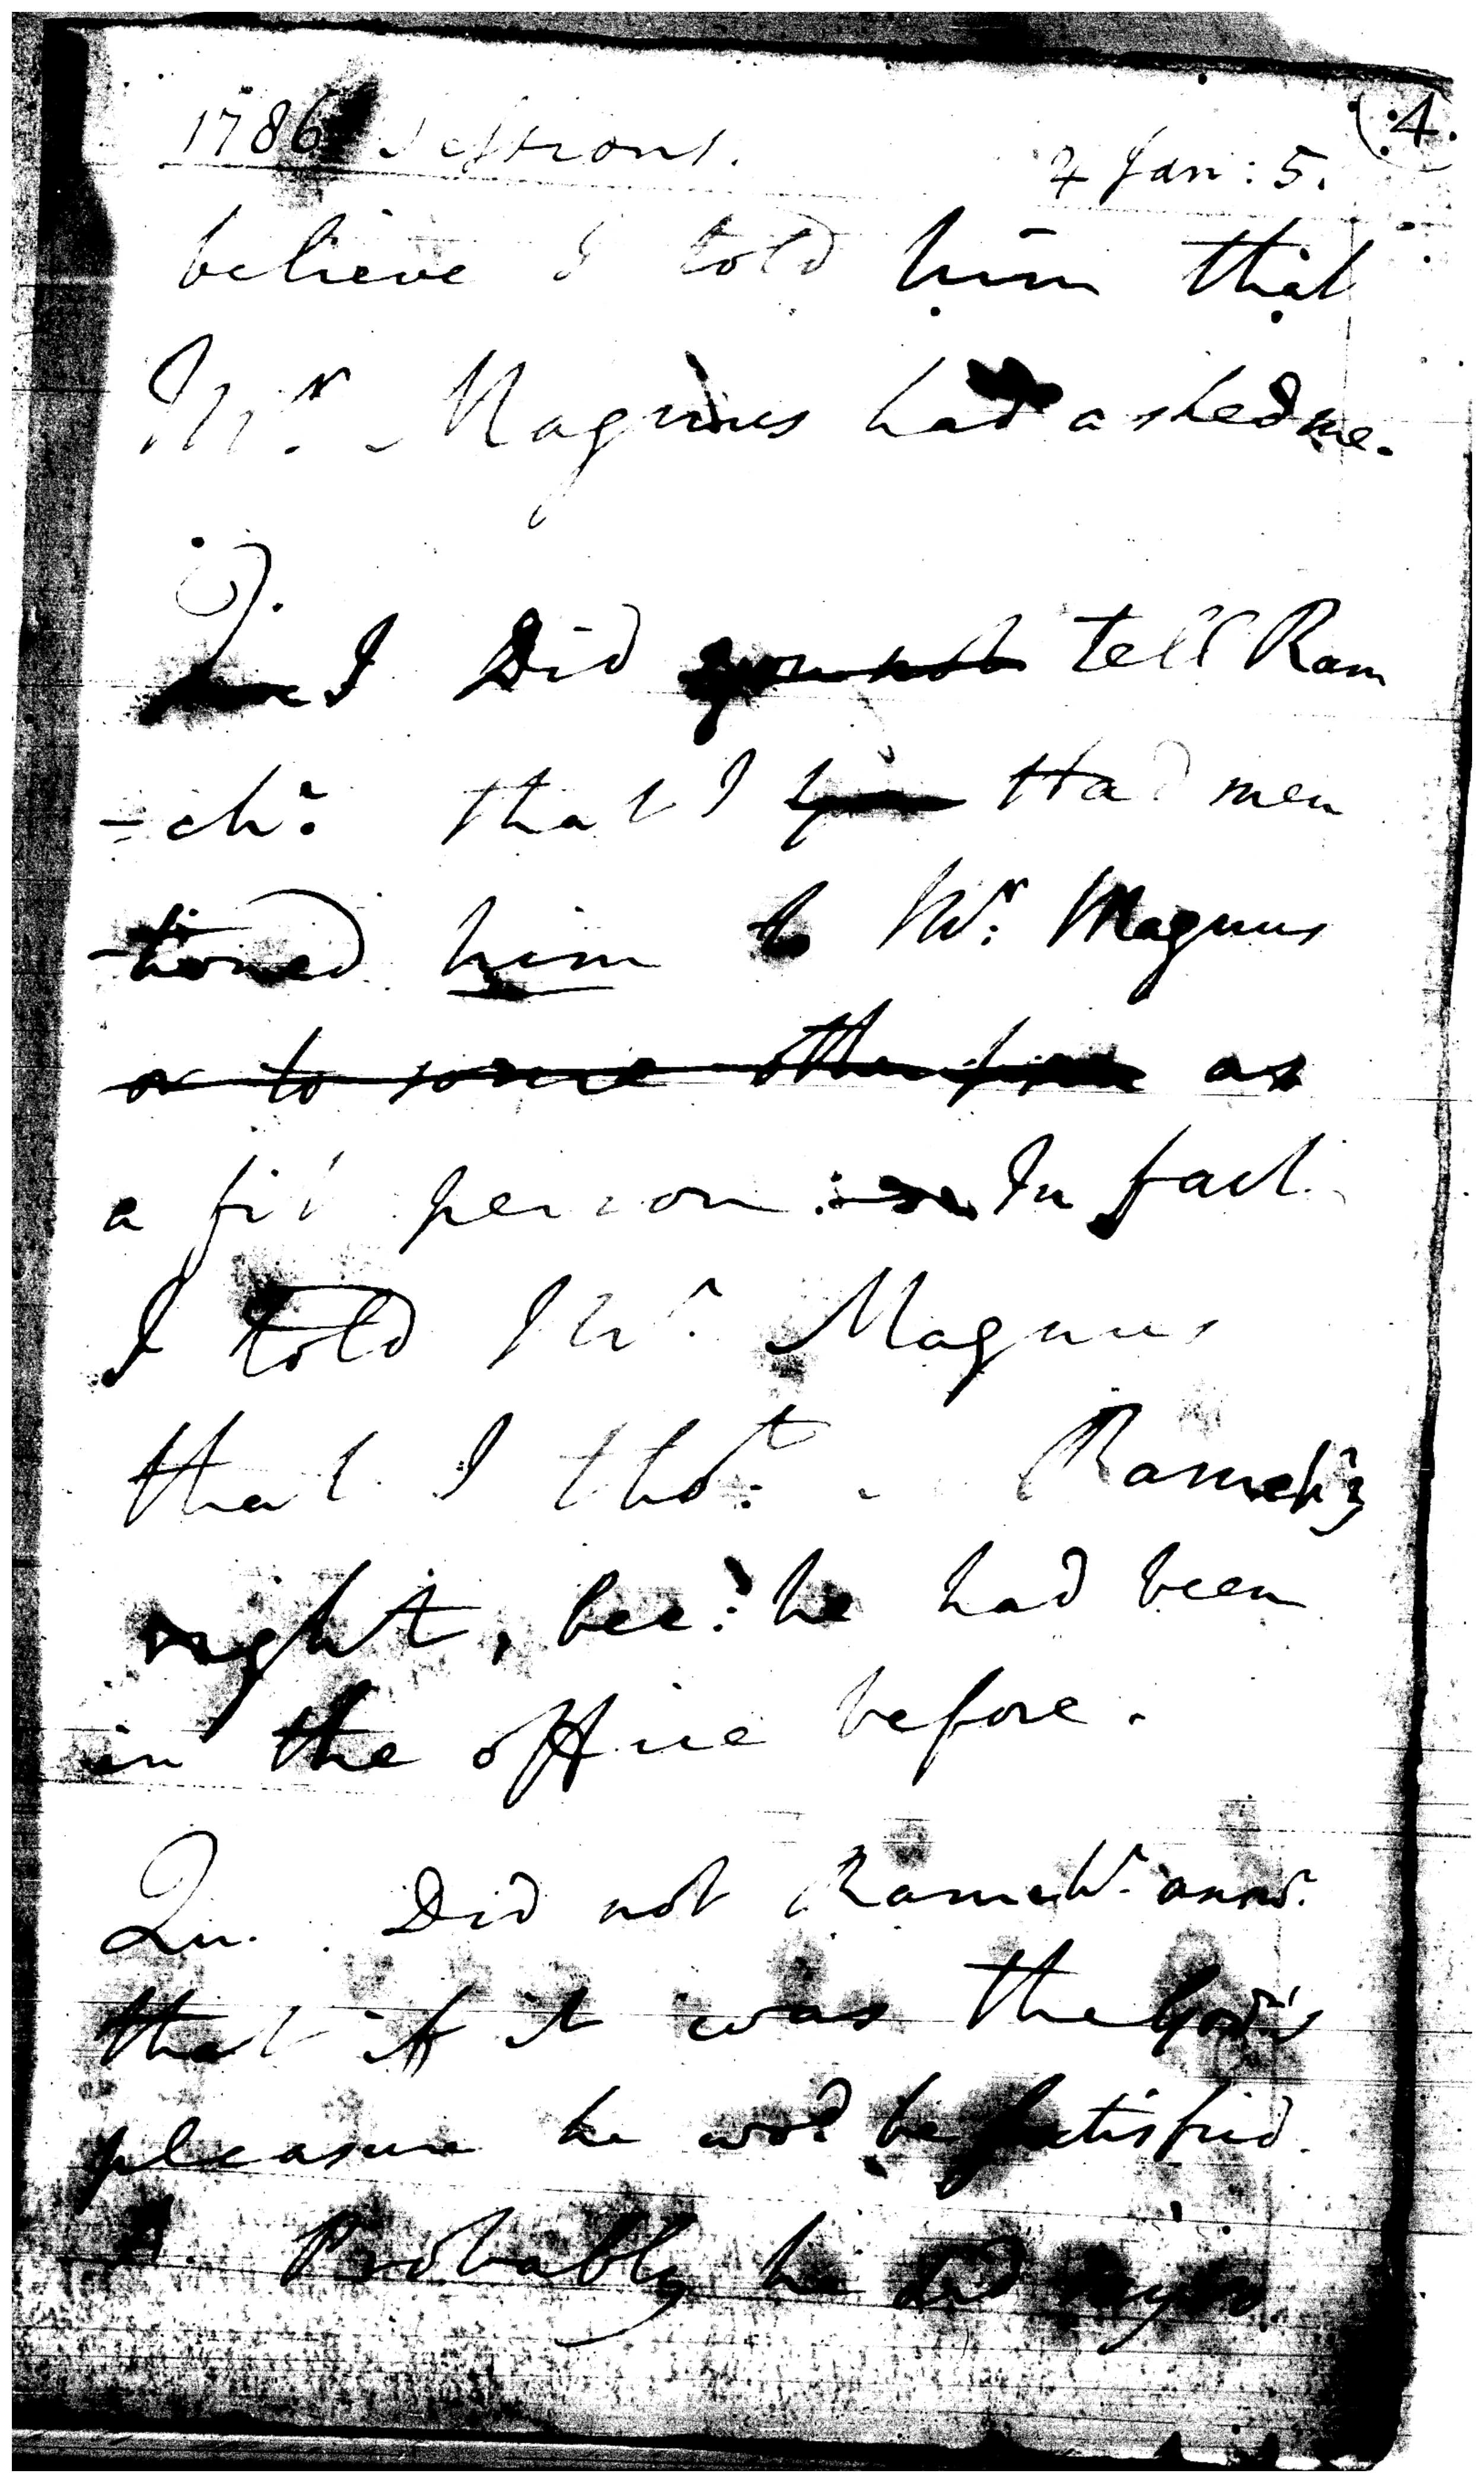 1786 Sessions.
4 Jan: 5.
4.
believe I told him that
Mr. Magnus had asked me.
Q.
I Did you not tell Ram
-chr. that I you Had men
-tioned him to Mr. Magnus
or to some other as
a fit person: In fact
I told Mr. Magnus
that I thot. Ramchrs
right, bec: he had been
in the office before.
Qu. Did not Ramchr. answr.
that if it was the Govr's
pleasure he wod be satisfied.
A. Probably he did say so